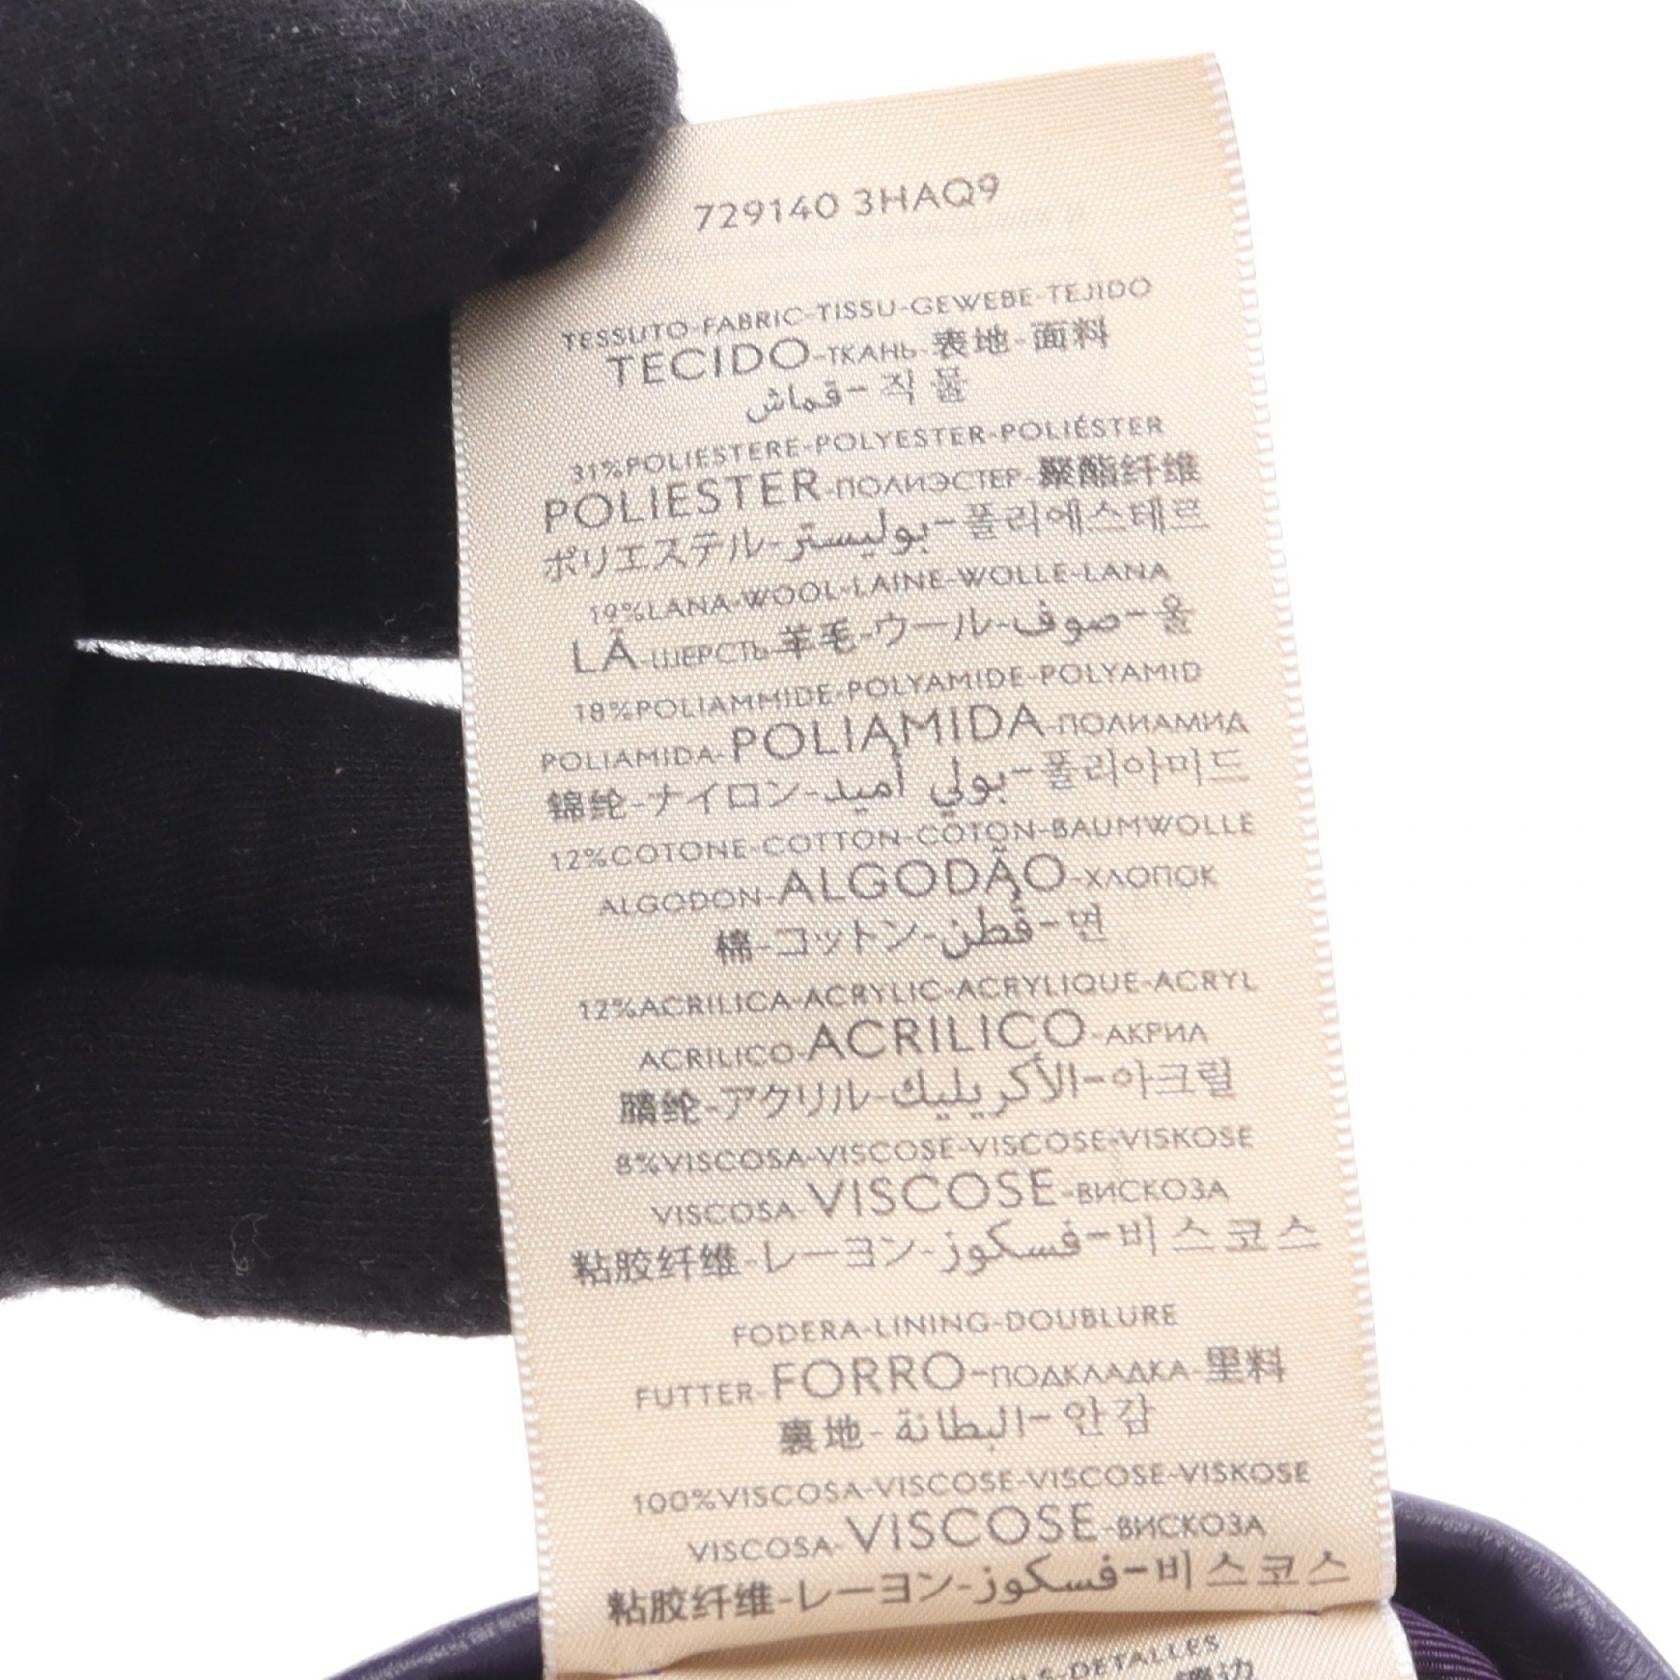 729140 3HAQ9
TESSUTO-FABRIC-TISSU-GEWEBE-TEJIDO
TECIDO-ТКАНЬ-表地-面料
قماش-직물
31%POLIESTERE-POLYESTER-POLIÉSTER
POLIESTER-ПОЛИЭСТЕР-聚酯纤维
ポリエステル-بوليستر-폴리에스테르
19%LANA-WOOL-LAINE-WOLLE-LANA
LÃ-ШЕРСТЬ-羊毛-ウール-صوف-울
18%POLIAMMIDE-POLYAMIDE-POLYAMID
POLIAMIDA-POLIAMIDA-ПОЛИАМИД
锦纶-ナイロン-بولي أميد-폴리아미드
12%COTONE-COTTON-COTON-BAUMWOLLE
ALGODON-ALGODÃO-ХЛОПОК
棉-コットン-قطن-면
12%ACRILICA-ACRYLIC-ACRYLIQUE-ACRYL
ACRILICO-ACRILICO-АКРИЛ
腈纶-アクリル-الأكريليك-아크릴
8%VISCOSA-VISCOSE-VISCOSE-VISKOSE
VISCOSA-VISCOSE-ВИСКОЗА
粘胶纤维-レーヨン-فسكوز-비스코스
FODERA-LINING-DOUBLURE
FUTTER-FORRO-ПОДКЛАДКА-里料
裏地-البطانة-안감
100%VISCOSA-VISCOSE-VISCOSE-VISKOSE
VISCOSA-VISCOSE-ВИСКОЗА
粘胶纤维-レーヨン-فسكوز-비스코스
-DETALLES